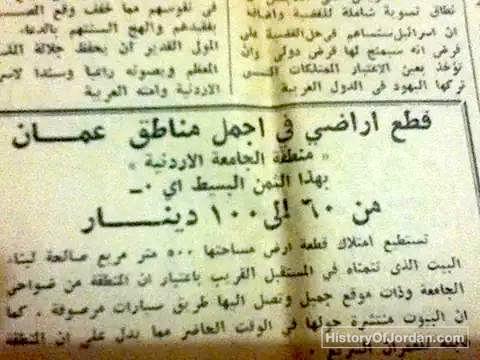 نطاق تسوية شاملة للقضية واضافة
ان اسرائيل ستساهم في حل القضية على
فرض انه سيمنح لها قرض دولي وان
تؤخذ بعين الاعتبار الممتلكات التي
تركها اليهود في الدول العربية
في نفوسهم مما خفف وقع
بفقيدهم والهج السنتهم بالدعاء
المولى القدير ان يحفظ جلالة
المعظم وبصونه راعيا وسندا
الاردنية وامته العربية
قطع اراضي في اجمل مناطق عمـــان
« منطقة الجامعة الاردنية »
بهذا الثمن البسيط اي ٠ــ
من ٦٠ الى ١٠٠ دينـــــار
تستطيع امتلاك قطعة ارض مساحتها ٥٠٠ متر مربع صالحة لبناء
البيت الذي تتمناه في المستقبل القريب باعتبار ان المنطقة من ضواحي
الجامعة وذات موقع جميل وتصل اليها طريق سيارات مرصوفة ، كما
ان البيوت منتشرة حولها في الوقت الحاضر مما يدل على ان المنطقة
HistoryOfJordan.com